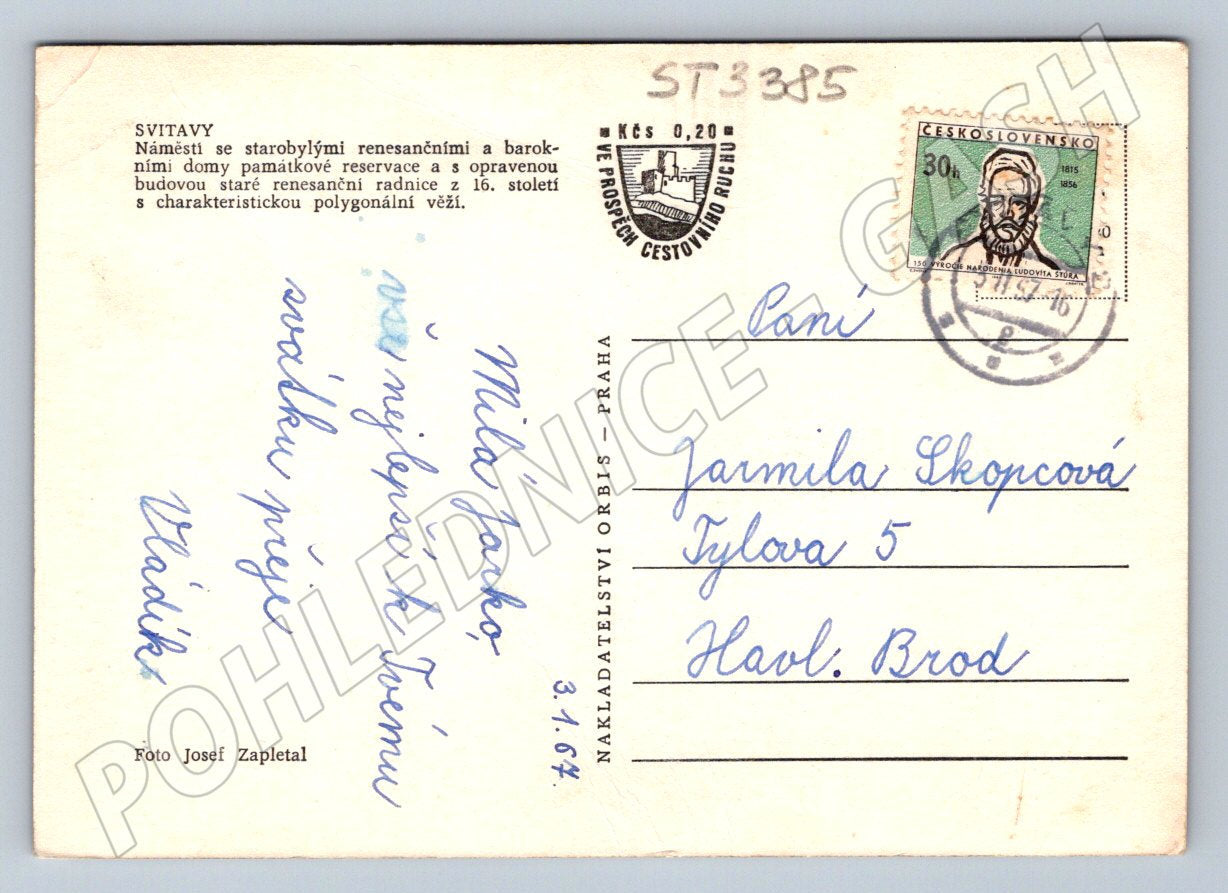 ST 3385
SVITAVY
Náměstí se starobylými renesančními a barok-
ními domy památkové reservace a s opravenou
budovou staré renesanční radnice z 16. století
s charakteristickou polygonální věží.
Kčs 0,20
VE PROSPĚCH CESTOVNÍHO RUCHU
ČESKOSLOVENSKO
30h
1815
1856
150 VÝROČIE NARODENIA ĽUDOVÍTA ŠTÚRA
Milá Jarko,
vše nejlepší k Tvému
svátku přeje
Vládík
3.1.67.
Foto Josef Zapletal
NAKLADATELSTVÍ ORBIS — PRAHA
Paní
Jarmila Skopcová
Tylova 5
Havl. Brod
POHLEDNICE - GACH